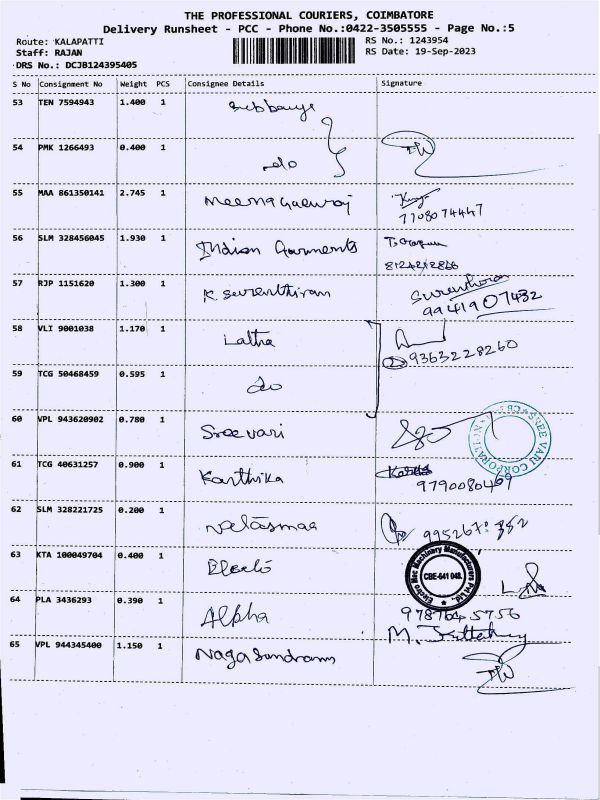 THE PROFESSIONAL COURIERS, COIMBATORE
Delivery Runsheet - PCC - Phone No.:0422-3505555 - Page No.:5
Route: KALAPATTI
RS No.: 1243954
Staff: RAJAN
RS Date: 19-Sep-2023
DRS No.: DCJB124395405
S No Consignment No Weight PCS Consignee Details Signature
53 TEN 7594943 1.400 1
54 PMK 1266493 0.400 1 do
55 MAA 861350141 2.745 1
7708074447
56 SLM 328456045 1.930 1 Indian Garments
57 RJP 1151620 1.300 1 K. Surenthiran
9941907432
58 VLI 9001038 1.170 1 Latha
9363228260
59 TCG 50468459 0.595 1 do
60 VPL 943620902 0.780 1 Sreevari
SREE VARI CORPORATION
61 TCG 40631257 0.900 1 Karthika
9790080469
62 SLM 328221725 0.200 1
63 KTA 100049704 0.400 1 Electo
Electro Mec Machinery Manufacturers Pvt Ltd.
CBE-641 048.
64 PLA 3436293 0.390 1 Alpha
65 VPL 944345400 1.150 1 Naga Sundram